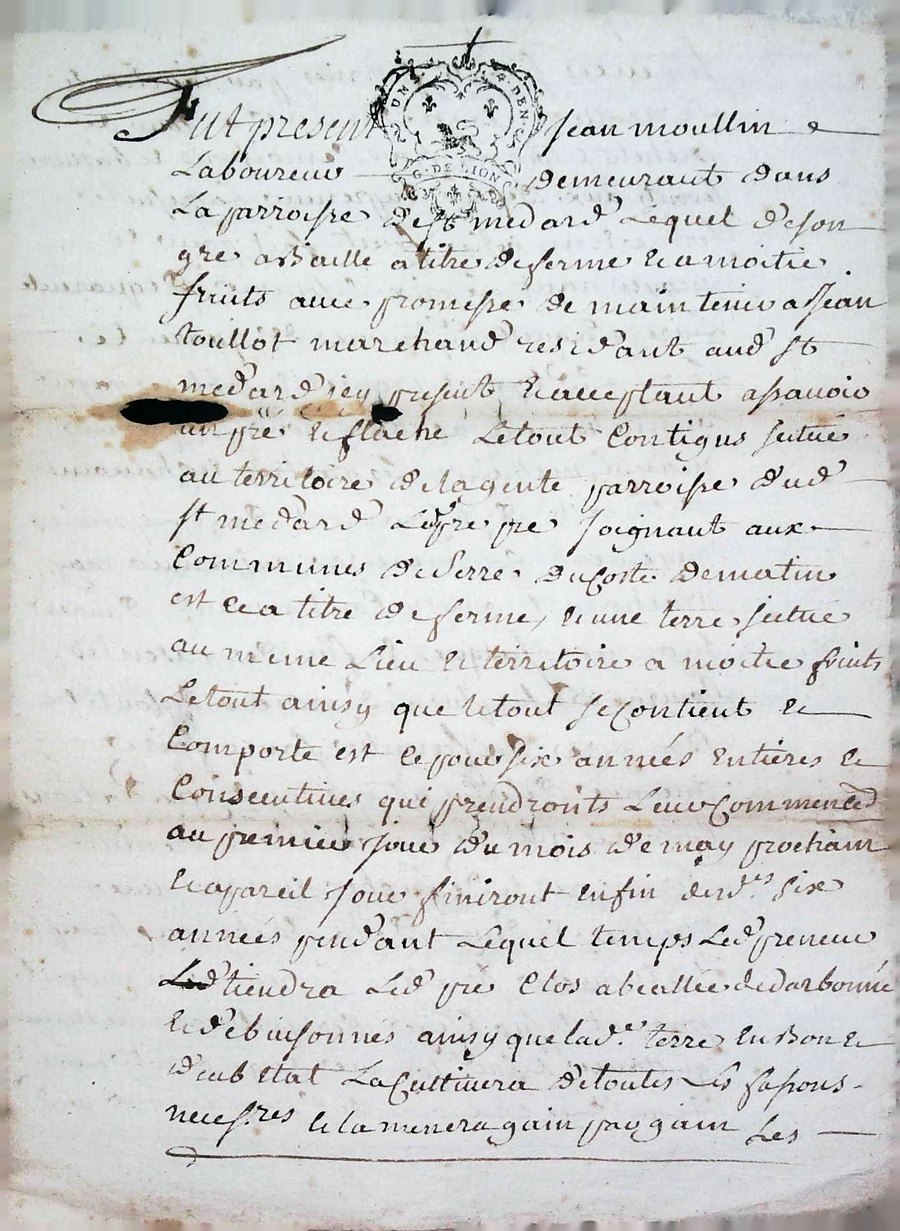 Fut present Jean moullin
UN S. 4 DEN
G. DE LION
Laboureur demeurant dans
La parroisse de St medard Lequel de son
gre a Baillé a titre de ferme & a moitié
fruits avec promesse de maintenir a Jean
toullot marchand residant aud St
medard icy present & acceptant assavoir
un pré & flache Letout Contigus situé
au territoire de lagente parroisse dud
St medard Led pre joignant aux
Communes de Serre du Coste dematin
est ce a titre de ferme, & une terre située
au meme Lieu & territoire a moitie fruits
Letout ainsy que letout se Contient &
Comporte est ce pour six années Entières &
Consecutives qui prendronts Leur Commenced
au premier jour du mois de may prochain
& a pareil jour finiront Enfin desd.es six
années pendant Lequel temps Led preneur
tiendra Led pré Clos
& débuisonnés ainsy que lad.e terre En Bon &
d'eub Etat La Cultivera de toutes Les sasons
necess.res & la menera gain par gain Les